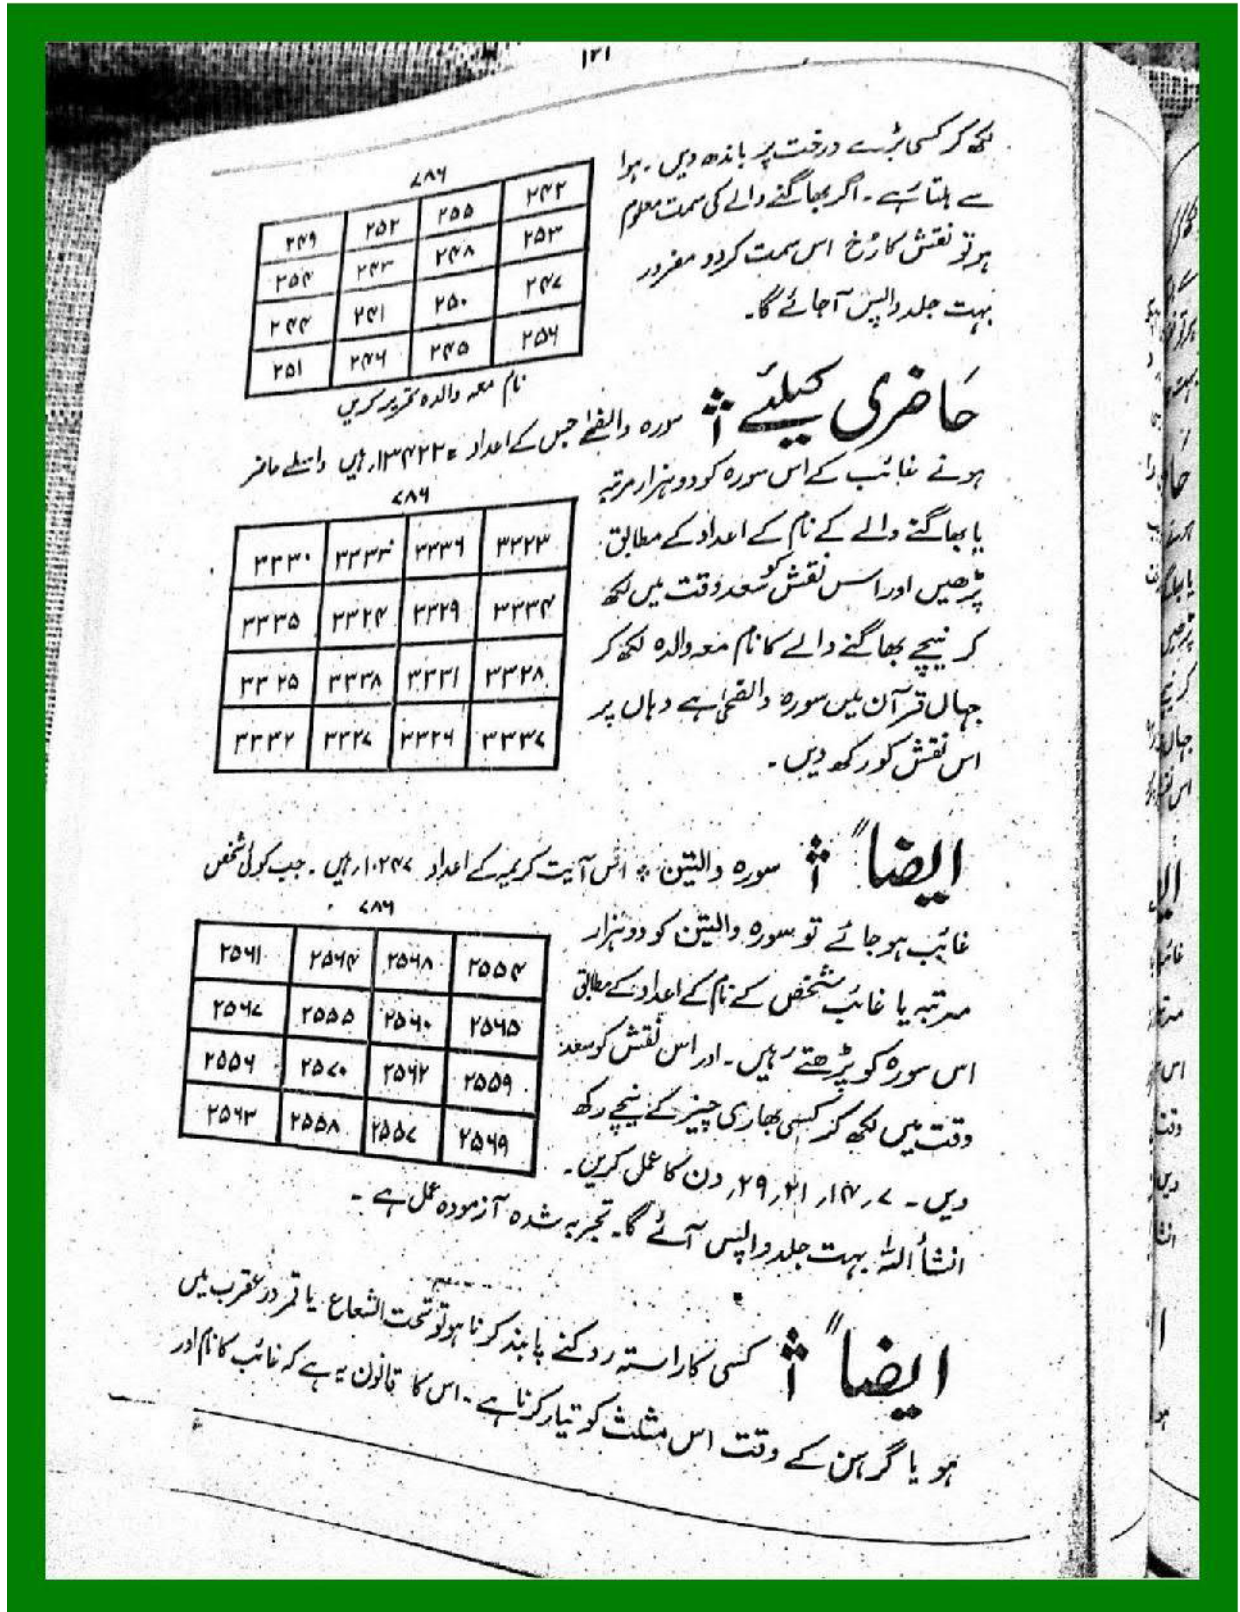 ۱۲۱
لکھ کر کسی بڑے درخت پر باندھ دیں۔ ہوا
سے ہلتا رہے۔ اگر بھاگنے والے کی سمت معلوم
ہو تو نقش کا رُخ اس سمت کردو مفرور
بہت جلد واپس آجائے گا۔
۷۸۶
۲۴۹ ۲۵۲ ۲۵۵ ۲۴۲
۲۵۴ ۲۴۳ ۲۴۸ ۲۵۳
۲۴۴ ۲۴۱ ۲۵۰ ۲۴۷
۲۵۱ ۲۴۶ ۲۴۵ ۲۵۶
نام معہ والدہ تحریر کریں
حَاضری کیلئے سورہ والضحٰے جس کے اعداد = ۱۳۴۲۲ رہیں واسطے حاضر
ہونے غائب کے اس سورہ کو دو ہزار مرتبہ
یا بھاگنے والے کے نام کے اعداد کے مطابق
پڑھیں اور اس نقش کو سعد وقت میں لکھ
کر نیچے بھاگنے والے کا نام معہ والدہ لکھ کر
جہاں قرآن میں سورہ والضحٰی ہے وہاں پر
اس نقش کو رکھ دیں۔
۷۸۶
۳۳۳۰ ۳۳۳۳ ۳۳۳۶ ۳۳۲۳
۳۳۳۵ ۳۳۲۴ ۳۳۲۹ ۳۳۳۴
۳۳۲۵ ۳۳۳۸ ۳۳۳۱ ۳۳۲۸
۳۳۳۲ ۳۳۲۷ ۳۳۲۶ ۳۳۳۷
ایضاً سورہ والتین ؞ اس آیت کریمہ کے اعداد ۱۰۲۴۷ رہیں۔ جب کوئی شخص
غائب ہوجائے تو سورہ والتین کو دو ہزار
مرتبہ یا غائب شخص کے نام کے اعداد کے مطابق
اس سورہ کو پڑھتے رہیں۔ اور اس نقش کو سعد
وقت میں لکھ کر کسی بھاری چیز کے نیچے رکھ
دیں۔ ۷، ۱۴، ۲۱، ۲۹، دن کا عمل کریں۔
انشأ اللہ بہت جلد واپس آئے گا۔ تجربہ شدہ آزمودہ عمل ہے۔
۷۸۶
۲۵۶۱ ۲۵۶۴ ۲۵۶۸ ۲۵۵۴
۲۵۶۷ ۲۵۵۵ ۲۵۶۰ ۲۵۶۵
۲۵۵۶ ۲۵۷۰ ۲۵۶۲ ۲۵۵۹
۲۵۶۳ ۲۵۵۸ ۲۵۵۷ ۲۵۶۹
ایضاً کسی کا راستہ روکنے پابند کرنا ہو تو تحت الشعاع یا قمر در عقرب میں
ہو یا گرہن کے وقت اس مثلث کو تیار کرنا ہے۔ اس کا قانون یہ ہے کہ غائب کا نام اور